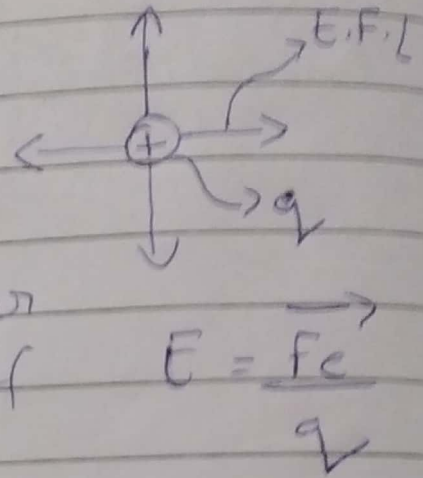 E.F.L
+
q
E = Fe
q